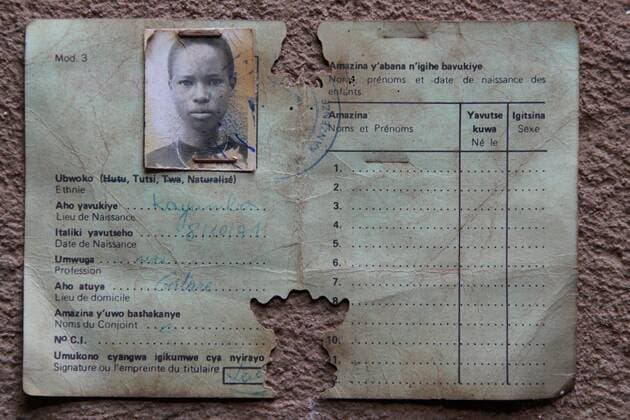 Mod. 3
Ubwoko (Hutu, Tutsi, Twa, Naturalisé)
Ethnie
Aho yavukiye
Lieu de Naissance
Italiki yavutseho
Date de Naissance
Umwuga
Profession
Aho atuye Butare
Lieu de domicile
Amazina y'uwo bashakanye
Noms du Conjoint
No C.I.
Umukono cyangwa igikumwe cya nyirayo
Signature ou l'empreinte du titulaire
Amazina y'abana n'igihe bavukiye
Noms, prénoms et date de naissance des
enfants
Amazina Yavutse Igitsina
Noms et Prénoms kuwa Sexe
Né le
1.
2.
3.
4.
5.
6.
7.
8
10.